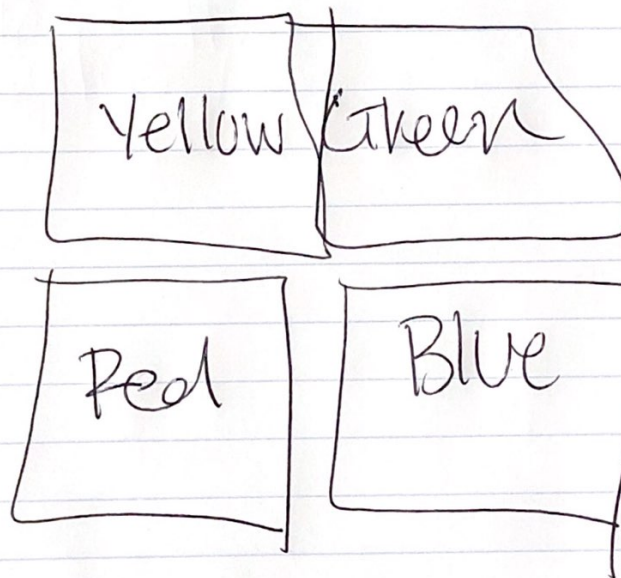 Yellow Green
Red Blue